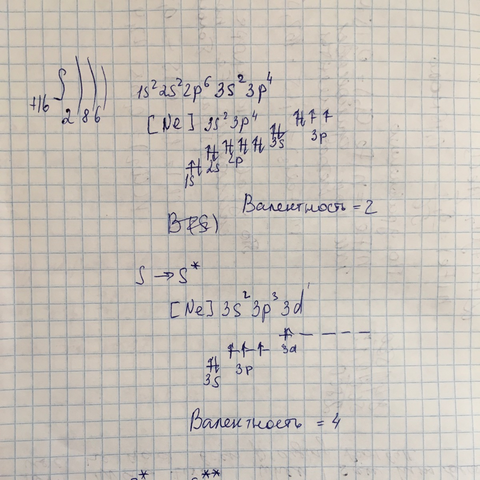 +16 S ) ) )
2 8 6
1s² 2s² 2p⁶ 3s² 3p⁴
[Ne] 3s² 3p⁴
1s 2s 2p 3s 3p
Валентность = 2
B(S)
S → S*
[Ne] 3s² 3p³ 3d¹
3s 3p 3d
Валентность = 4
S* S**